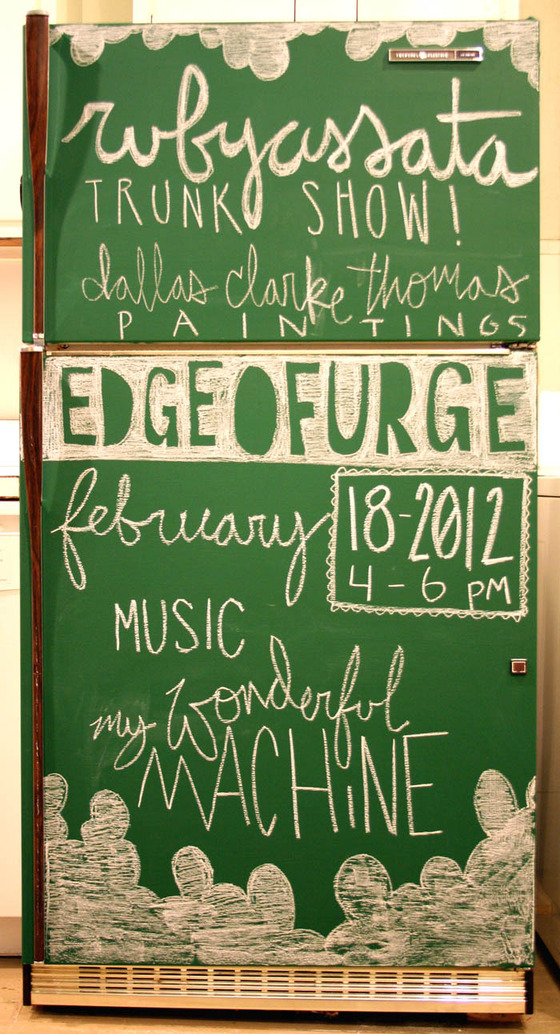 rubyassata
TRUNK SHOW!
dallas clarke thomas
PAINTINGS
EDGEOFURGE
february
18-2012
4-6 PM
MUSIC
my wonderful
MACHINE